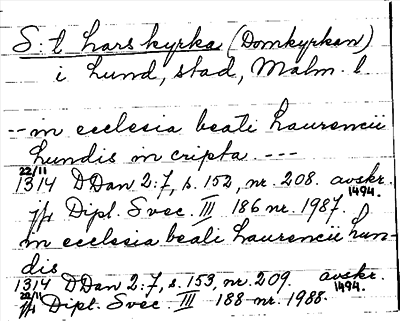 S. t Lars kyrka (Domkyrkan)
i Lund, stad, Malm. l
-- in ecclesia beati Laurencii
Lundis in cripta. ---
22/11
1314 DDan 2:7, s. 152, nr. 208. avskr. 1494.
jfr Dipl. Svec. III 186 nr. 1987.
in ecclesia beati Laurencii Lun-
dis
1314 DDan 2:7, s. 153, nr. 209. avskr. 1494.
22/11
jfr Dipl. Svec. III 188 nr. 1988.